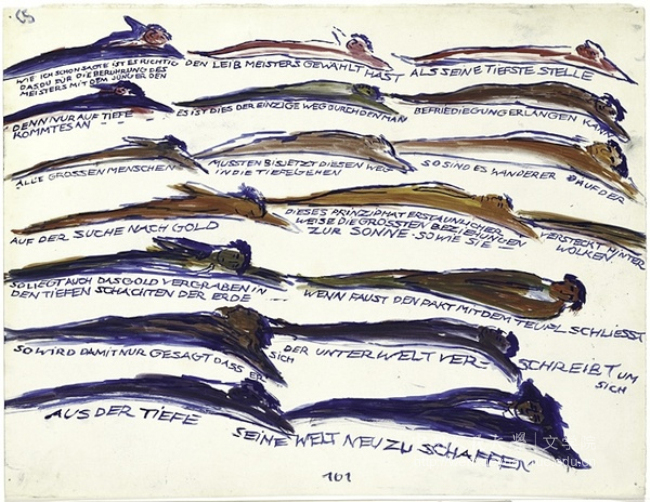 WIE ICH SCHON SAGTE IST ES RICHTIG
DAS DU FÜR DIE BERÜHRUNG DES
MEISTERS MIT DEM JÜNGER DEN
DEN LEIB MEISTERS GEWÄHLT HAST
ALS SEINE TIEFSTE STELLE
DENN NUR AUF TIEFE
KOMMTES AN
ES IST DIES DER EINZIGE WEG DURCH DEN MAN
BEFRIEDIEGUNG ERLANGEN KANN
ALLE GROSSEN MENSCHEN
MUSSTEN BIS JETZT DIESEN WEG
IN DIE TIEFE GEHEN
SO SIND ES WANDERER
AUF DER
AUF DER SUCHE NACH GOLD
DIESES PRINZIP HAT ERSTAUNLICHER
WEISE DIE GRÖSSTEN BEZIEHUNGEN
ZUR SONNE. SOWIE SIE
VERSTECKT HINTER
WOLKEN.
SO LIEGT AUCH DAS GOLD VERGRABEN IN
DEN TIEFEN SCHÄCHTEN DER ERDE
WENN FAUST DEN PAKT MIT DEM TEUFL SCHLIESST
SO WIRD DAMIT NUR GESAGT DASS ER
SICH
DER UNTERWELT VER-
SCHREIBT UM
SICH
AUS DER TIEFE
SEINE WELT NEU ZU SCHAFFEN
101